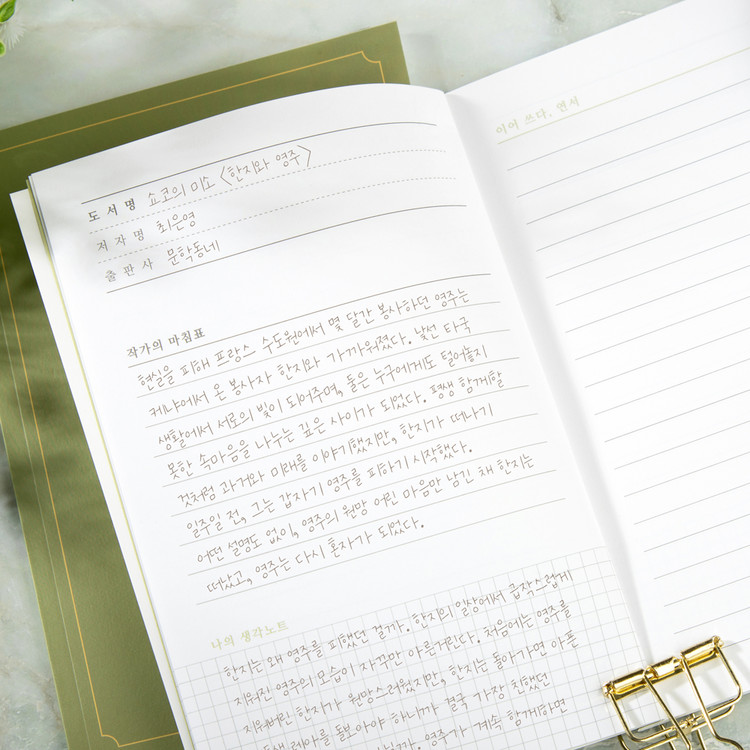 도서명 쇼코의 미소 <한지와 영주>
저자명 최은영
출판사 문학동네
작가의 마침표
현실을 피해 프랑스 수도원에서 몇 달간 봉사하던 영주는
케냐에서 온 봉사자 한지와 가까워졌다. 낯선 타국
생활에서 서로의 빛이 되어주며, 둘은 누구에게도 털어놓지
못한 속마음을 나누는 깊은 사이가 되었다. 평생 함께할
것처럼 과거와 미래를 이야기했지만, 한지가 떠나기
일주일 전, 그는 갑자기 영주를 피하기 시작했다.
어떤 설명도 없이, 영주의 원망 어린 마음만 남긴 채 한지는
떠났고, 영주는 다시 혼자가 되었다.
나의 생각노트
한지는 왜 영주를 피했던 걸까. 한지의 일상에서 급작스럽게
지워진 영주의 모습이 자꾸만 아른거린다. 처음에는 영주를
지워버린 한지가 원망스러웠지만, 한지는 돌아가면 아픈
돌봐야 하니까 결국 가장 친했던
영주가 계속 함께하면
이어 쓰다, 엔서